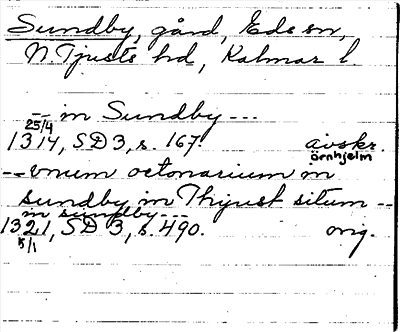 Sundby, gård, Eds sn,
N. Tjusts hd, Kalmar l.
-- in Sundby ---
25/4
1314, SD 3, s. 167. avskr.
örnhjelm
-- vnum octonarium in
sundby in Thiust situm --
in sundby ---
1321, SD 3, s. 490. orig.
5/1